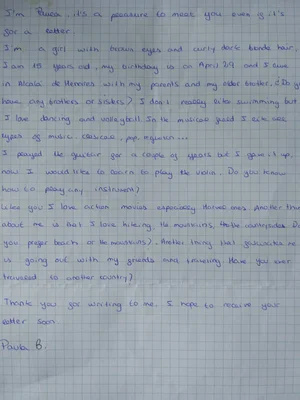 I'm Paula, it's a pleasure to meet you even if it's
for a letter
I'm a girl with brown eyes and curly dark blonde hair,
I am 15 years old, my birthday is on April 29 and I live
in Alcalá de Henares with my parents and my older brother, (Do you
have any brothers or sisters?) I don't really like swimming but
I love dancing and volleyball. In the musical good I like all
types of music classical, pop, reguetón...
I played the guitar for a couple of years but I gave it up,
now I would like to learn to play the violin. Do you know
how to play any instrument?
Like you I love action movies especially marvel ones. Another thing
about me is that I love hiking, the mountains, the countryside. Do
you prefer beach or the mountains?. Another thing that fascinates me
is going out with my friends and traveling. Have you ever
travelled to another country?
Thank you for writing to me, I hope to receive your
letter soon
Paula B.